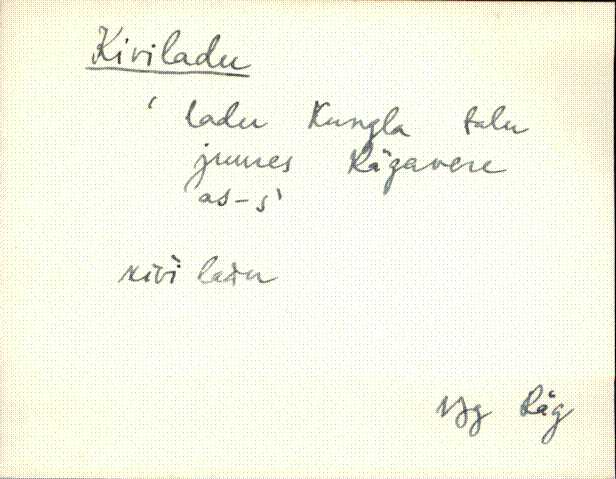 Kiviladu
‘ladu Kungla talu
juures Rägavere
as-s’
kivì laδu
VJg Räg